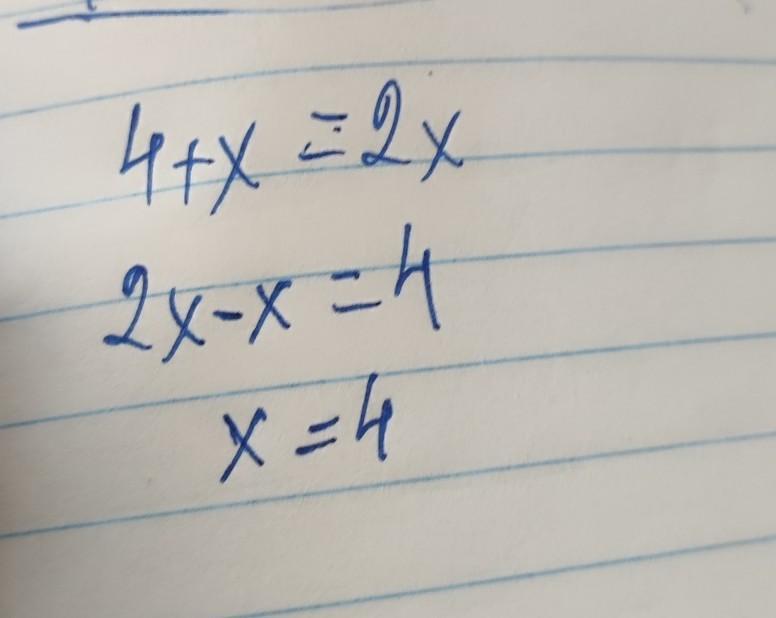 4+x = 2x
2x-x = 4
x = 4